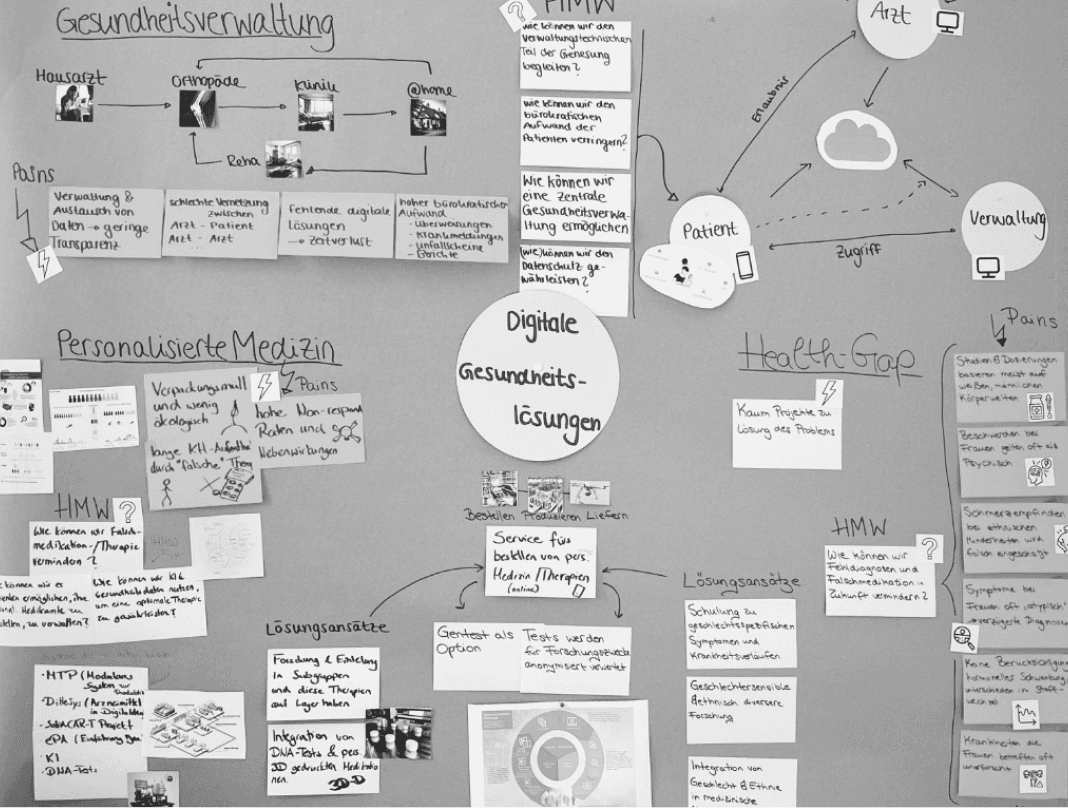 Gesundheitsverwaltung
Hausarzt
Orthopäde
Klinik
@home
Reha
Pains
Verwaltung &
Austausch von
Daten → geringe
Transparenz
schlechte Vernetzung
zwischen
Arzt - Patient
Arzt - Arzt
...
fehlende digitale
Lösungen
→ Zeitverlust
hoher bürokratischer
Aufwand
- Überweisungen
- Krankmeldungen
- Unfallscheine
- Berichte
HMW
?
Wie können wir den
verwaltungstechnischen
Teil der Genesung
begleiten?
Wie können wir den
bürokratischen
Aufwand der
Patienten verringern?
Wie können wir
eine zentrale
Gesundheitsverwa-
ltung ermöglichen
(wie) können wir den
Datenschutz ge-
währleisten?
Arzt
Erlaubnis
Patient
Verwaltung
Zugriff
Digitale
Gesundheits-
lösungen
Personalisierte Medizin
Pains
Verpackungsmüll
und wenig
ökologisch
hohe Non-respond
Raten und
Nebenwirkungen
lange KH-Aufentha
durch "falsche" Thera
HMW
?
Wie können wir Falsch-
medikation-/Therapie
vermindern?
HMW
Wie können wir KI &
Gesundheitsdaten nutzen,
um eine optimale Therapie
zu gewährleisten?
können wir es
ermöglichen, ihre
zu verwalten?
· MTP (Modulares
System
· (Arzneimittel
in Digitalisie
· Projekt
· ePA (Einführung
· KI
· DNA-Tests
Lösungsansätze
Forschung & Einteilung
in Subgruppen
und diese Therapien
auf Lager haben
Integration von
DNA-Tests & pers.
3D gedruckten Medikatio
nen.
3D-D
Bestellen Produzieren Liefern
Service fürs
bestellen von pers.
Medizin/Therapien
(online)
Gentest als
Option
Tests werden
für Forschungszwecke
anonymisiert verwertet
Health-Gap
Kaum Projekte zu
Lösung des Problems
HMW
?
Wie können wir
Fehldiagnosen und
Falschmedikation in
Zukunft vermindern?
Lösungsansätze
Schulung zu
geschlechtsspezifischen
Symptomen und
Krankheitsverläufen
Geschlechtersensible
& ethnisch diversere
Forschung
Integration von
Geschlecht & Ethnie
in medizinische
Pains
Studien & Dosierungen
basieren meist auf
weißen, männlichen
Körperwelten
Beschwerden bei
Frauen gelten oft als
Psychisch
Schmerzempfinden
bei ethnischen
Minderheiten wird
falsch eingeschätzt
Symptome bei
Frauen oft "atypisch"
→ verzögerte Diagnosen
Keine Berücksichtigung
hormoneller Schwankung,
unterschieden in Stoff-
wechsel
Krankheiten die
Frauen betreffen oft
unerforscht